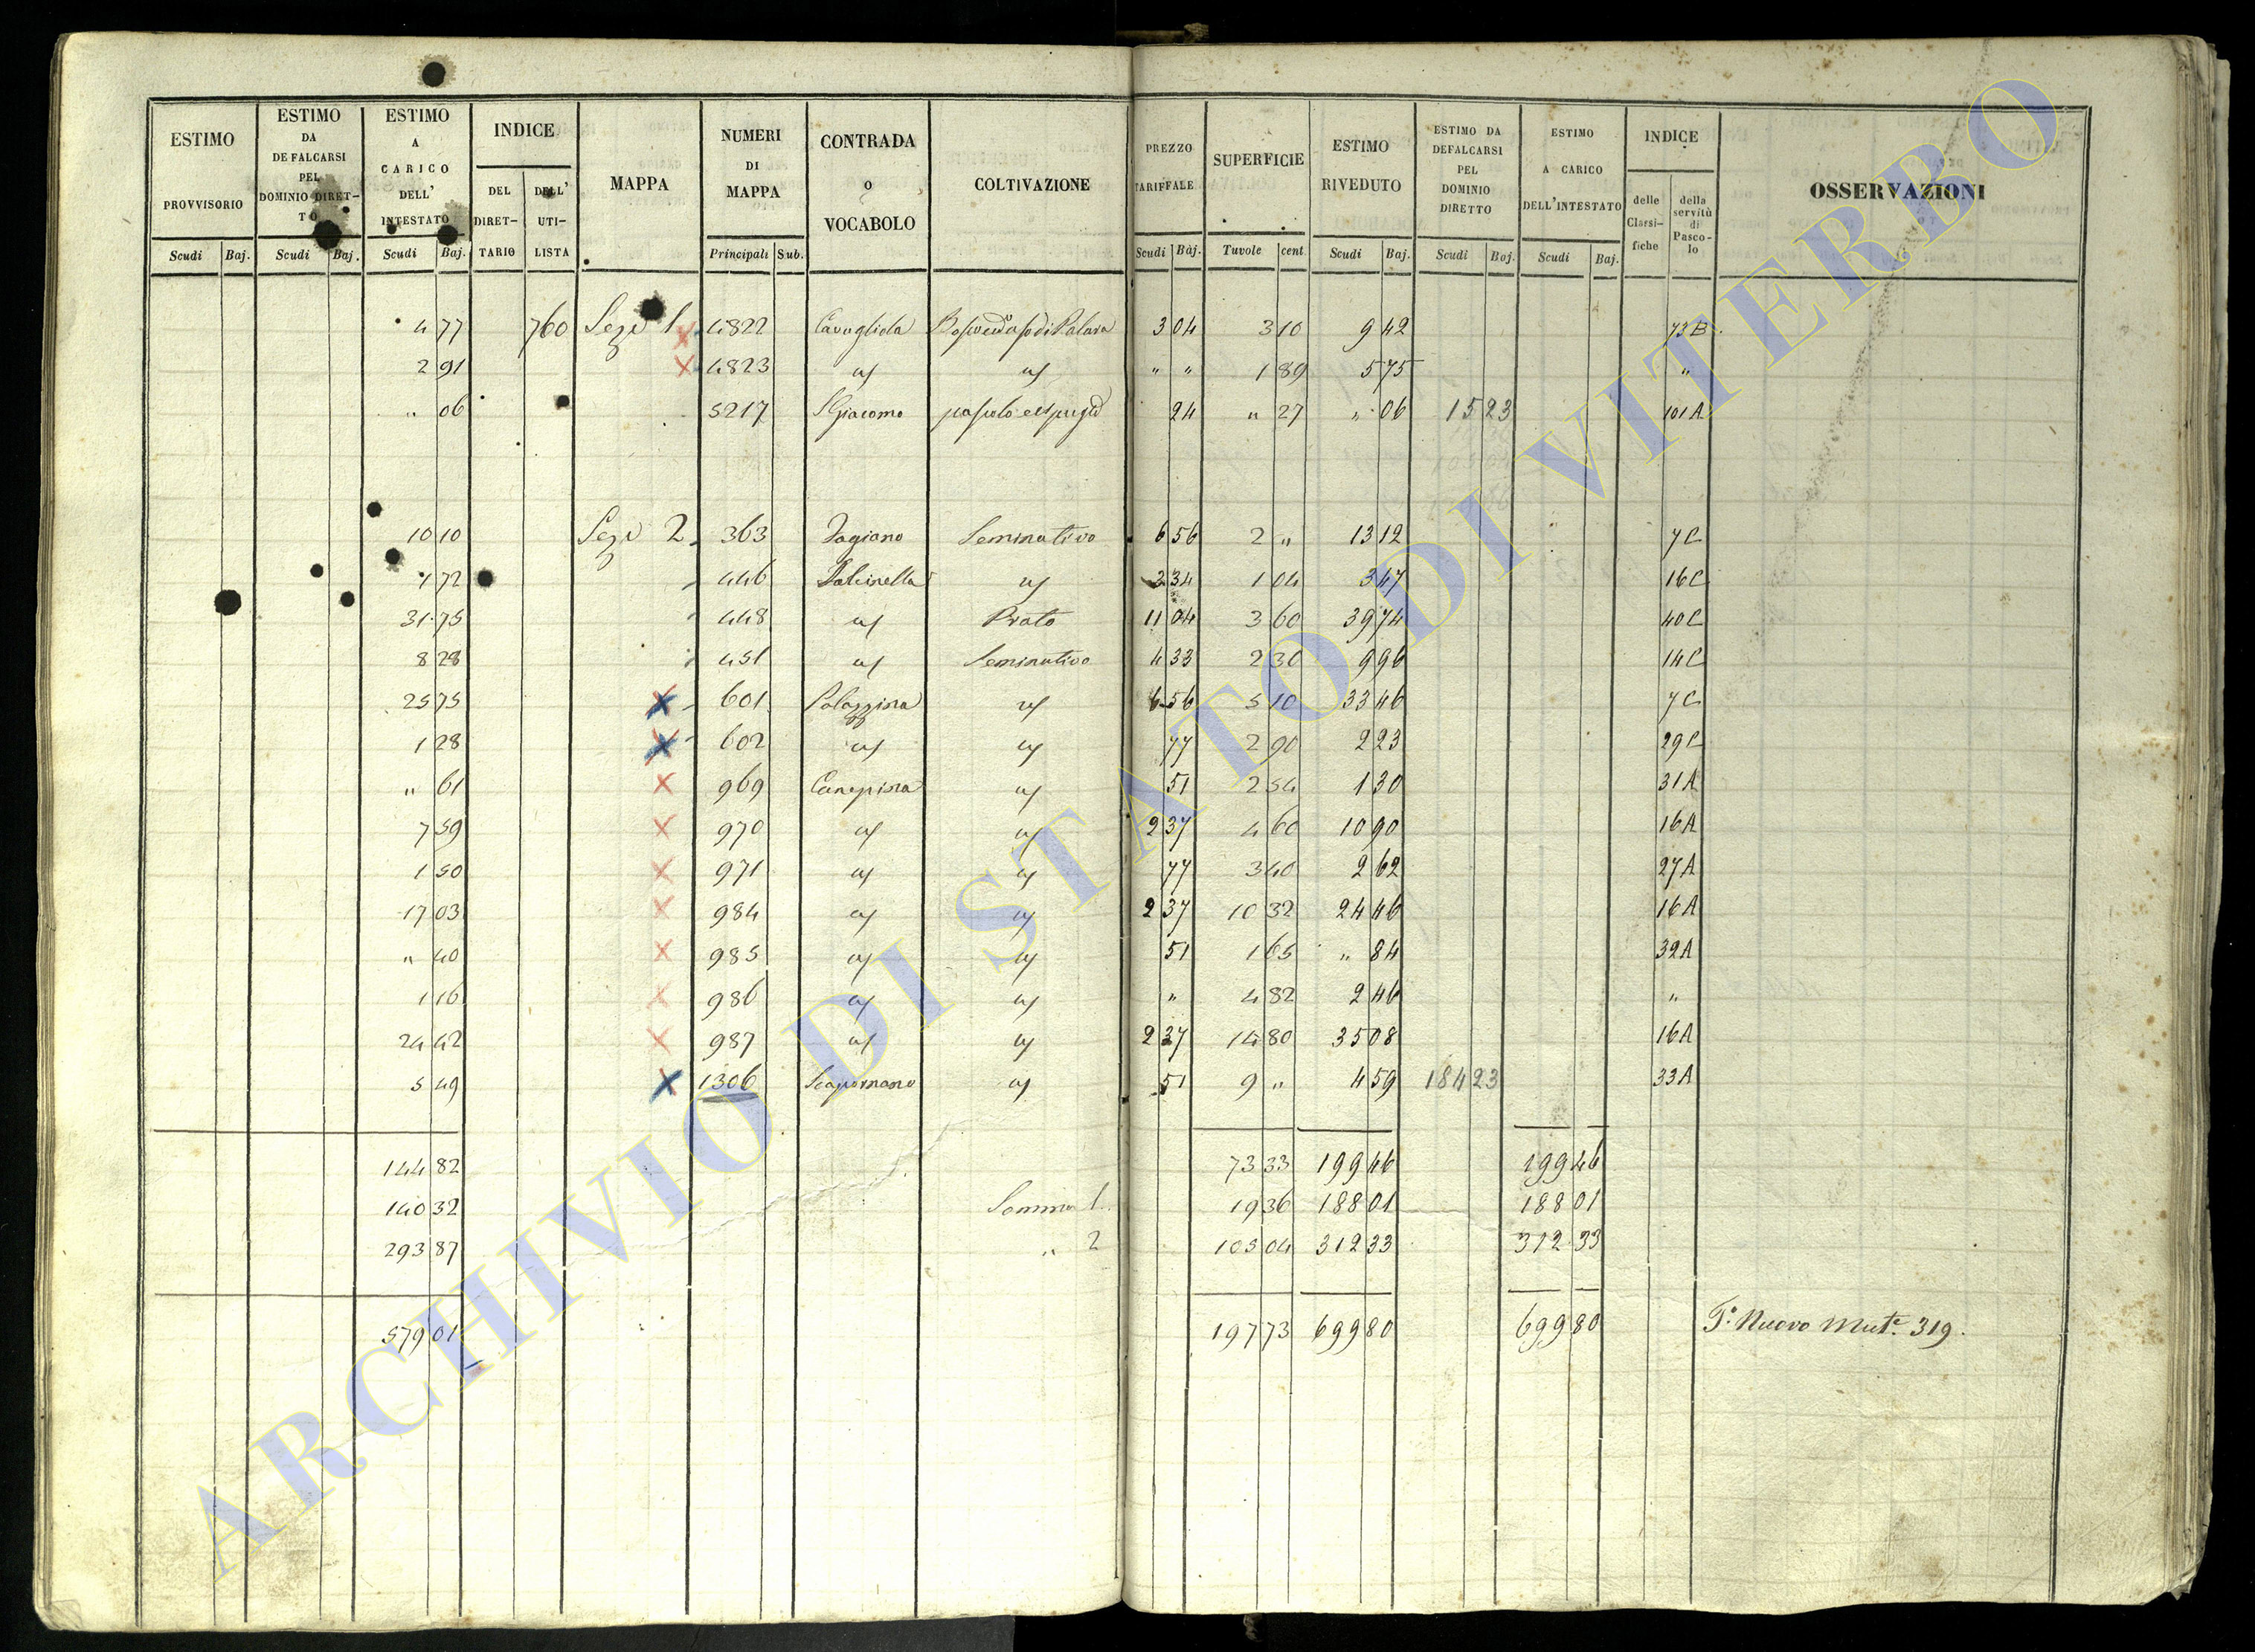 ESTIMO PROVVISORIO Scudi Baj.
ESTIMO DA DEFALCARSI PEL DOMINIO DIRETTO Scudi Baj.
ESTIMO A CARICO DELL' INTESTATO Scudi Baj.
INDICE DEL DIRETTARIO DELL' UTILISTA
MAPPA
NUMERI DI MAPPA Principali Sub.
CONTRADA o VOCABOLO
COLTIVAZIONE
PREZZO TARIFFALE Scudi Baj.
SUPERFICIE Tuvole cent
ESTIMO RIVEDUTO Scudi Baj.
ESTIMO DA DEFALCARSI PEL DOMINIO DIRETTO Scudi Baj.
ESTIMO A CARICO DELL'INTESTATO Scudi Baj.
INDICE delle Classifiche della servitù di Pascolo
OSSERVAZIONI
4 77 760 Sezе 1 4822 Cavaglida 3 04 3 10 9 42 73 B
2 91 4823 " " 1 89 5 75 "
" 06 5217 S Giacomo 24 " 27 " 06 15 23 101 A
10 10 2 363 Seminativo 6 56 2 " 13 12 7 C
1 72 446 2 34 1 04 3 47 16 C
31 75 448 Prato 11 04 3 60 39 74 40 C
8 28 451 Seminativo 4 33 2 30 9 96 14 C
25 75 601 Palazzina 6 56 5 10 33 46 7 C
1 28 602 77 2 90 2 23 29 C
" 61 969 Canepina 51 2 54 1 30 31 A
7 59 970 2 37 4 60 10 90 16 A
1 50 971 77 3 40 2 62 27 A
17 03 984 2 37 10 32 24 46 16 A
" 40 985 51 1 65 " 84 32 A
1 16 986 " 4 82 2 46 "
24 42 987 2 37 14 80 35 08 16 A
5 49 1306 51 9 " 4 59 184 23 33 A
144 82 73 33 199 46 199 46
140 32 Somma 1 19 36 188 01 188 01
293 87 " 2 105 04 312 33 312 33
579 01 197 73 699 80 699 80 Nuovo Mut.e 319.
ARCHIVIO DI STATO DI VITERBO